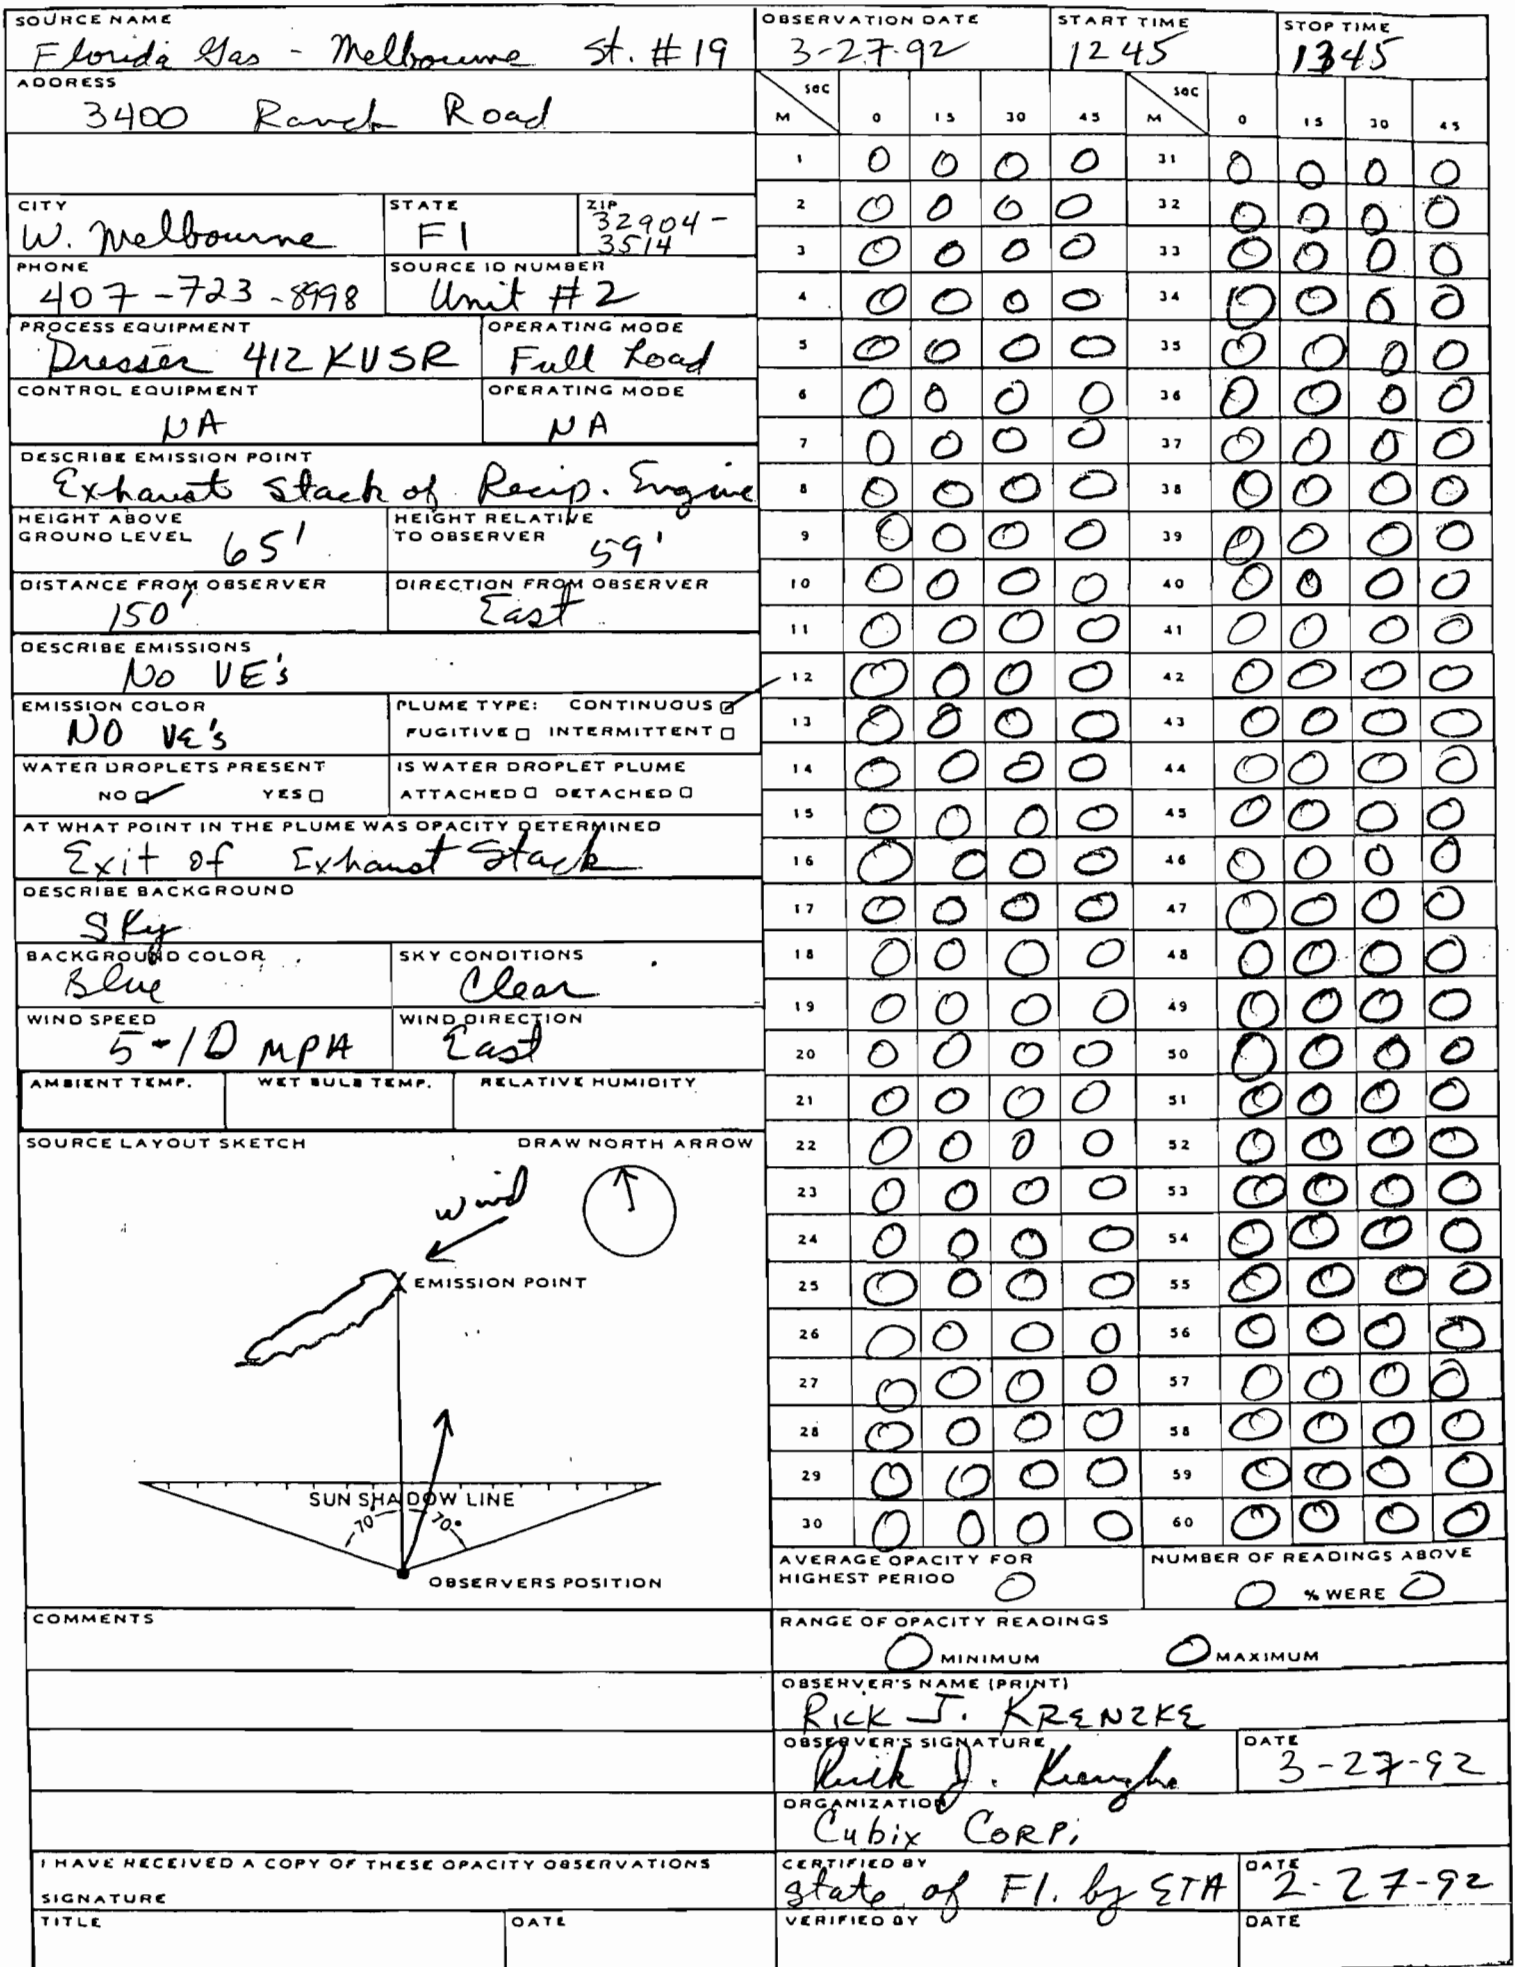 SOURCE NAME
Florida Gas - Melbourne St. #19
OBSERVATION DATE
3-27-92
START TIME
1245
STOP TIME
1345
ADDRESS
3400 Ranch Road
CITY
W. Melbourne
STATE
Fl
ZIP
32904-
3514
PHONE
407-723-8998
SOURCE ID NUMBER
Unit #2
PROCESS EQUIPMENT
Dresser 412 KVSR
OPERATING MODE
Full Load
CONTROL EQUIPMENT
NA
OPERATING MODE
NA
DESCRIBE EMISSION POINT
Exhaust Stack of Recip. Engine
HEIGHT ABOVE
GROUND LEVEL 65'
HEIGHT RELATIVE
TO OBSERVER 59'
DISTANCE FROM OBSERVER
150'
DIRECTION FROM OBSERVER
East
DESCRIBE EMISSIONS
No VE's
EMISSION COLOR
NO VE's
PLUME TYPE: CONTINUOUS
FUGITIVE INTERMITTENT
WATER DROPLETS PRESENT
NO YES
IS WATER DROPLET PLUME
ATTACHED DETACHED
AT WHAT POINT IN THE PLUME WAS OPACITY DETERMINED
Exit of Exhaust Stack
DESCRIBE BACKGROUND
Sky
BACKGROUND COLOR
Blue
SKY CONDITIONS
Clear
WIND SPEED
5-10 MPH
WIND DIRECTION
East
AMBIENT TEMP.
WET BULB TEMP.
RELATIVE HUMIDITY
SOURCE LAYOUT SKETCH
DRAW NORTH ARROW
Wind
EMISSION POINT
SUN SHADOW LINE
70° 70°
OBSERVERS POSITION
COMMENTS
I HAVE RECEIVED A COPY OF THESE OPACITY OBSERVATIONS
SIGNATURE
TITLE
DATE
M sec 0 15 30 45 M sec 0 15 30 45
1 0 0 0 0 31 0 0 0 0
2 0 0 0 0 32 0 0 0 0
3 0 0 0 0 33 0 0 0 0
4 0 0 0 0 34 0 0 0 0
5 0 0 0 0 35 0 0 0 0
6 0 0 0 0 36 0 0 0 0
7 0 0 0 0 37 0 0 0 0
8 0 0 0 0 38 0 0 0 0
9 0 0 0 0 39 0 0 0 0
10 0 0 0 0 40 0 0 0 0
11 0 0 0 0 41 0 0 0 0
12 0 0 0 0 42 0 0 0 0
13 0 0 0 0 43 0 0 0 0
14 0 0 0 0 44 0 0 0 0
15 0 0 0 0 45 0 0 0 0
16 0 0 0 0 46 0 0 0 0
17 0 0 0 0 47 0 0 0 0
18 0 0 0 0 48 0 0 0 0
19 0 0 0 0 49 0 0 0 0
20 0 0 0 0 50 0 0 0 0
21 0 0 0 0 51 0 0 0 0
22 0 0 0 0 52 0 0 0 0
23 0 0 0 0 53 0 0 0 0
24 0 0 0 0 54 0 0 0 0
25 0 0 0 0 55 0 0 0 0
26 0 0 0 0 56 0 0 0 0
27 0 0 0 0 57 0 0 0 0
28 0 0 0 0 58 0 0 0 0
29 0 0 0 0 59 0 0 0 0
30 0 0 0 0 60 0 0 0 0
AVERAGE OPACITY FOR
HIGHEST PERIOD 0
NUMBER OF READINGS ABOVE
0 % WERE 0
RANGE OF OPACITY READINGS
0 MINIMUM 0 MAXIMUM
OBSERVER'S NAME (PRINT)
RICK J. KRENZKE
OBSERVER'S SIGNATURE
Rick J. Krenzke
DATE
3-27-92
ORGANIZATION
Cubix CORP.
CERTIFIED BY
State of Fl. by ETA
DATE
2-27-92
VERIFIED BY
DATE